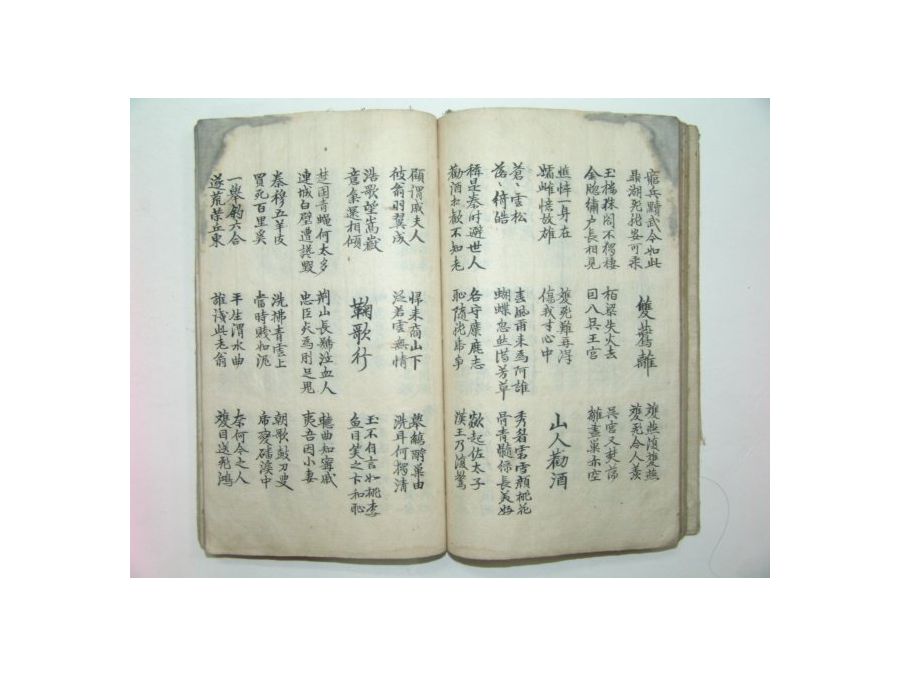 窮兵黷武今如此
鼎湖飛龍安可乘
雙鷰離
雙燕復雙燕
雙飛令人羨
玉樓珠閣不獨棲
金牕繡户長相見
柏梁失火去
因入吳王宮
吳宮又焚蕩
雛盡巢亦空
憔悴一身在
孀雌憶故雄
雙飛難再得
傷我寸心中
山人勸酒
蒼〻雲松
落〻綺皓
春風爾来爲阿誰
蝴蝶忽然滿芳草
秀眉霜雪顔桃花
骨青髓緑長美好
稱是秦時避世人
勸酒相歡不知老
各守麋鹿志
恥隨龍虎爭
欻起佐太子
漢王乃復驚
顧謂戚夫人
彼翁羽翼成
歸来商山下
泛若雲無情
擧觴酹巢由
洗耳何獨清
浩歌望嵩嶽
意氣還相傾
鞠歌行
玉不自言如桃李
魚目笑之卞和恥
楚国青蠅何太多
連城白璧遭讒毀
荊山長號泣血人
忠臣死爲刖足鬼
聽曲知甯戚
夷吾因小妻
秦穆五羊皮
買死百里奚
洗拂青雲上
當時賤如泥
朝歌鼓刀叟
虎変磻溪中
一擧釣六合
遂荒營丘東
平生渭水曲
誰識此老翁
奈何今之人
雙目送飛鴻